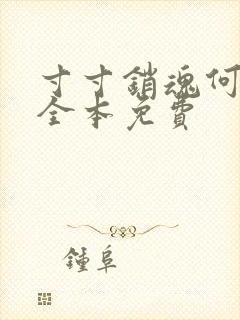 寸寸銷魂何
全本免費
鍾阜